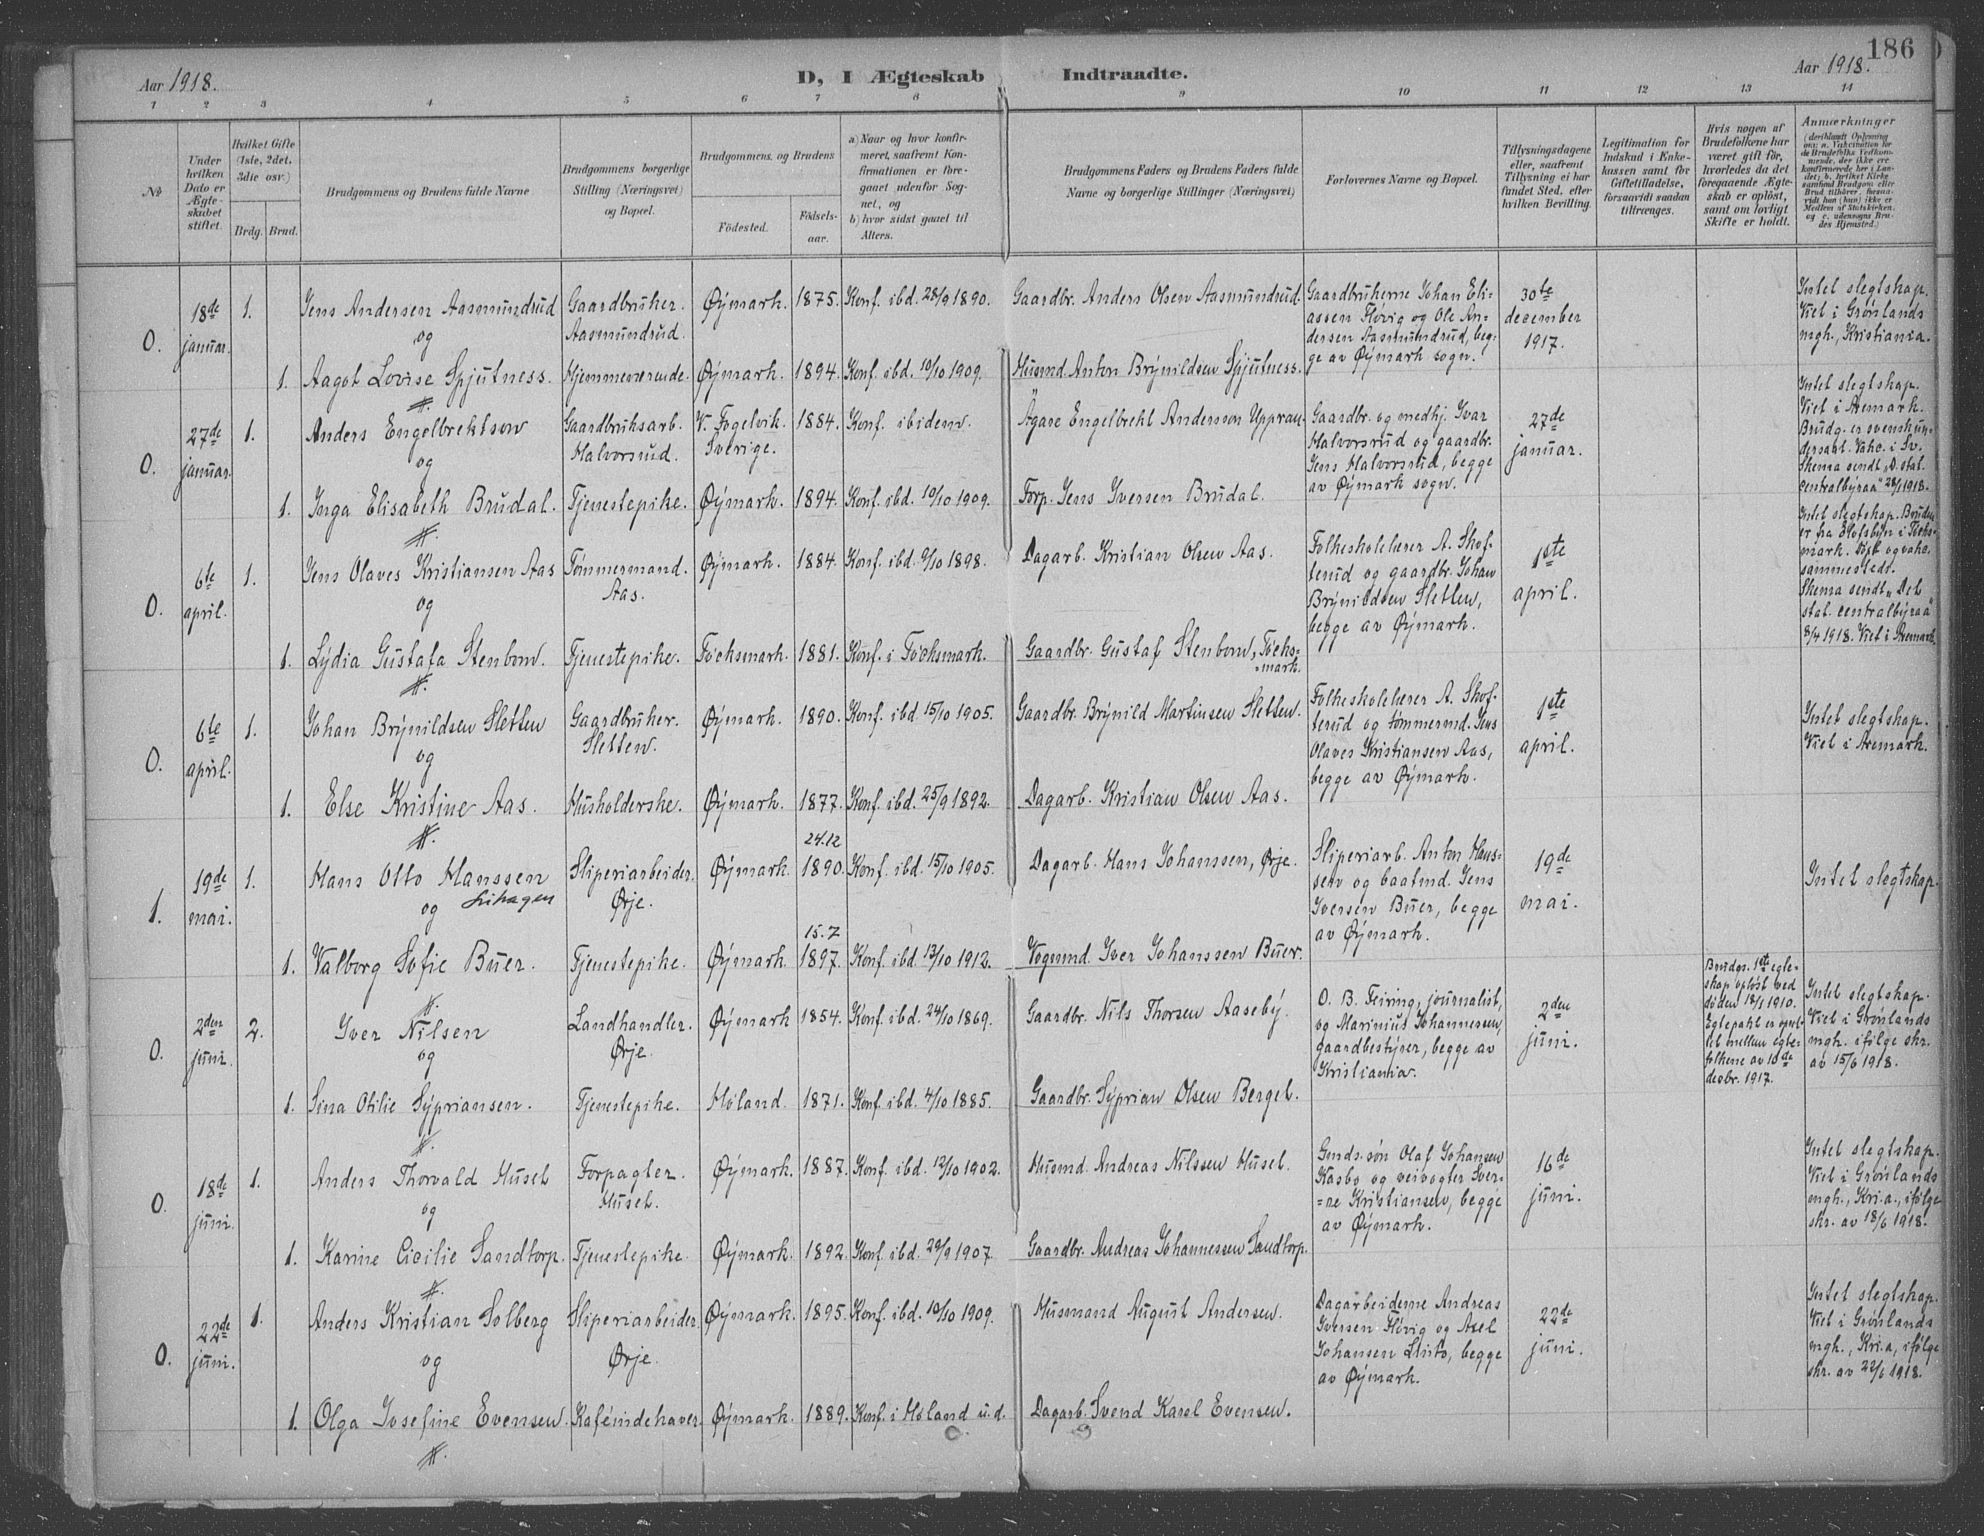 186
Aar 1918.
D, I Ægteskab Indtraadte.
Aar 1918.
1 2 3 4 5 6 7 8 9 10 11 12 13 14
No
Under hvilken Dato er Ægteskabet stiftet.
Hvilket Gifte (1ste, 2det, 3die osv.)
Brdg. Brud.
Brudgommens og Brudens fulde Navne
Brudgommens borgerlige Stilling (Næringsvei) og Bopæl.
Brudgommens og Brudens
Födested.
Födselsaar.
a) Naar og hvor konfirmeret, saafremt Konfirmationen er foregaaet udenfor Sognet, og
b) hvor sidst gaaet til Alters.
Brudgommens Faders og Brudens Faders fulde Navne og borgerlige Stillinger (Næringsvei)
Forlovernes Navne og Bopæl.
Tillysningsdagene eller, saafremt Tillysning ei har fundet Sted, efter hvilken Bevilling.
Legitimation for Indskud i Enkekassen samt for Giftetilladelse, forsaavidt saadan tiltrænges.
Hvis nogen af Brudefolkene har været gift för, hvorledes da det foregaaende Ægteskab er oplöst, samt om lovligt Skifte er holdt.
Anmærkninger
0. 18de januar. 1. Jens Andersen Aasmundrud Gaardbruker. Aasmundrud. Øymark. 1875. Konf. ibd. 28/9 1890. Gaardbr. Anders Olsen Aasmundrud.
Gaardbrukerne Johan Eliassen Fløvig og Ole Andersen Aasmundrud, begge av Øymark sogn.
30te december 1917.
Intet slegtskap. Viet i Grønlands mgh., Kristiania.
og
1. Aagot Lovise Spjutness. Hjemmeværende. Øymark. 1894. Konf. ibd. 10/10 1909. Husmd. Anton Brynildsen Spjutness.
0. 27de januar. 1. Anders Engelbrektson Gaardbruksarb. Halvorsrud. V. Fogelvik. Sverige. 1884. Konf. ibidem. Ägare Engelbrekt Anderson Uppran.
Gaardbr. og medhj. Ivar Halvorsrud og gaardbr. Jens Halvorsrud, begge av Øymark sogn.
27de januar.
Intet slegtskap. Viet i Aremark. Brudg. er svensk undersaat. Vakc. i Sv. Skema sendt „D. stat. centralbyraa“ 28/1 1918.
og
1. Inga Elisabeth Brudal. Tjenestepike. Øymark. 1894. Konf. ibd. 10/10 1909. Forp. Jens Iversen Brudal.
0. 6te april. 1. Jens Olaves Kristiansen Aas Tømmermand. Aas. Øymark. 1884. Konf. ibd. 9/10 1898. Dagarb. Kristian Olsen Aas.
Folkeskolelærer A. Skofterud og gaardbr. Johan Brynildsen Sletten, begge av Øymark.
1ste april.
Intet slegtskap. Bruden er fra Elofsbyn i Töcksmark. Döpt og vakc. sammesteds. Skema sendt „Det stat. centralbyraa“ 8/4 1918. Viet i Aremark.
og
1. Lydia Gustafa Stenbom. Tjenestepike. Töcksmark. 1881. Konf. i Töcksmark. Gaardbr. Gustaf Stenbom, Töcksmark.
0. 6te april. 1. Johan Brynildsen Sletten Gaardbruker. Sletten. Øymark. 1890. Konf. ibd. 15/10 1905. Gaardbr. Brynild Martinsen Sletten.
Folkeskolelærer A. Skofterud og tømmermd. Jens Olaves Kristiansen Aas, begge av Øymark.
1ste april.
Intet slegtskap. Viet i Aremark.
og
1. Else Kristine Aas. Husholderske. Øymark. 1877. Konf. ibd. 25/9 1892. Dagarb. Kristian Olsen Aas.
1. 19de mai. 1. Hans Otto Hanssen Lihagen Sliperiarbeider. Ørje. Øymark. 24.12 1890. Konf. ibd. 15/10 1905. Dagarb. Hans Johanssen, Ørje.
Sliperiarb. Anton Hanssen og baatmd. Jens Iversen Buer, begge av Øymark.
19de mai.
Intet slegtskap.
og
1. Valborg Sofie Buer. Tjenestepike. Øymark. 15.7 1897. Konf. ibd. 13/10 1912. Vognmd. Iver Johanssen Buer.
0. 2den juni. 2. Iver Nilsen Landhandler. Ørje. Øymark 1854. Konf. ibd. 24/10 1869. Gaardbr. Nils Thorsen Aaseby.
O. B. Feiring, journalist, og Marinius Johannessen, gaardbestyrer, begge av Kristiania.
2den juni.
Brudgs. 1ste egteskap opløst ved döden 18/1 1910. Egtepakt er oprettet mellem egtefolkene av 10de decbr. 1917.
Intet slegtskap. Viet i Grønlands mgh. ifölge skr. av 15/6 1918.
og
1. Sina Otilie Sypriansen. Tjenestepike. Høland. 1871. Konf. ibd. 4/10 1885. Gaardbr. Syprian Olsen Berget.
0. 18de juni. 1. Anders Thorvald Huset Forpagter. Huset. Øymark. 1887. Konf. ibd. 12/10 1902. Husmd. Andreas Nilssen Huset.
Gmds. søn Olaf Johansen Kasbo og veivogter Sverre Kristiansen, begge av Øymark.
16de juni.
Intet slegtskap. Viet i Grønlands mgh., Kri.a., ifölge skr. av 18/6 1918.
og
1. Karine Cicilie Sandtorp. Tjenestepike. Øymark. 1892. Konf. ibd. 29/9 1907. Gaardbr. Andreas Johannessen Sandtorp.
0. 22de juni. 1. Anders Kristian Solberg Sliperiarbeider. Ørje. Øymark. 1895. Konf. ibd. 10/10 1909. Husmand August Andersen.
Dagarbeiderne Andreas Iversen Fløvig og Axel Johansen Listo, begge av Øymark.
22de juni.
Intet slegtskap. Viet i Grønlands mgh., Kri.a, ifölge skr. av 22/6 1918.
og
1. Olga Josefine Evensen. Kaféindehaver. Øymark. 1889. Konf. i Høland u.d. Dagarb. Svend Karel Evensen.